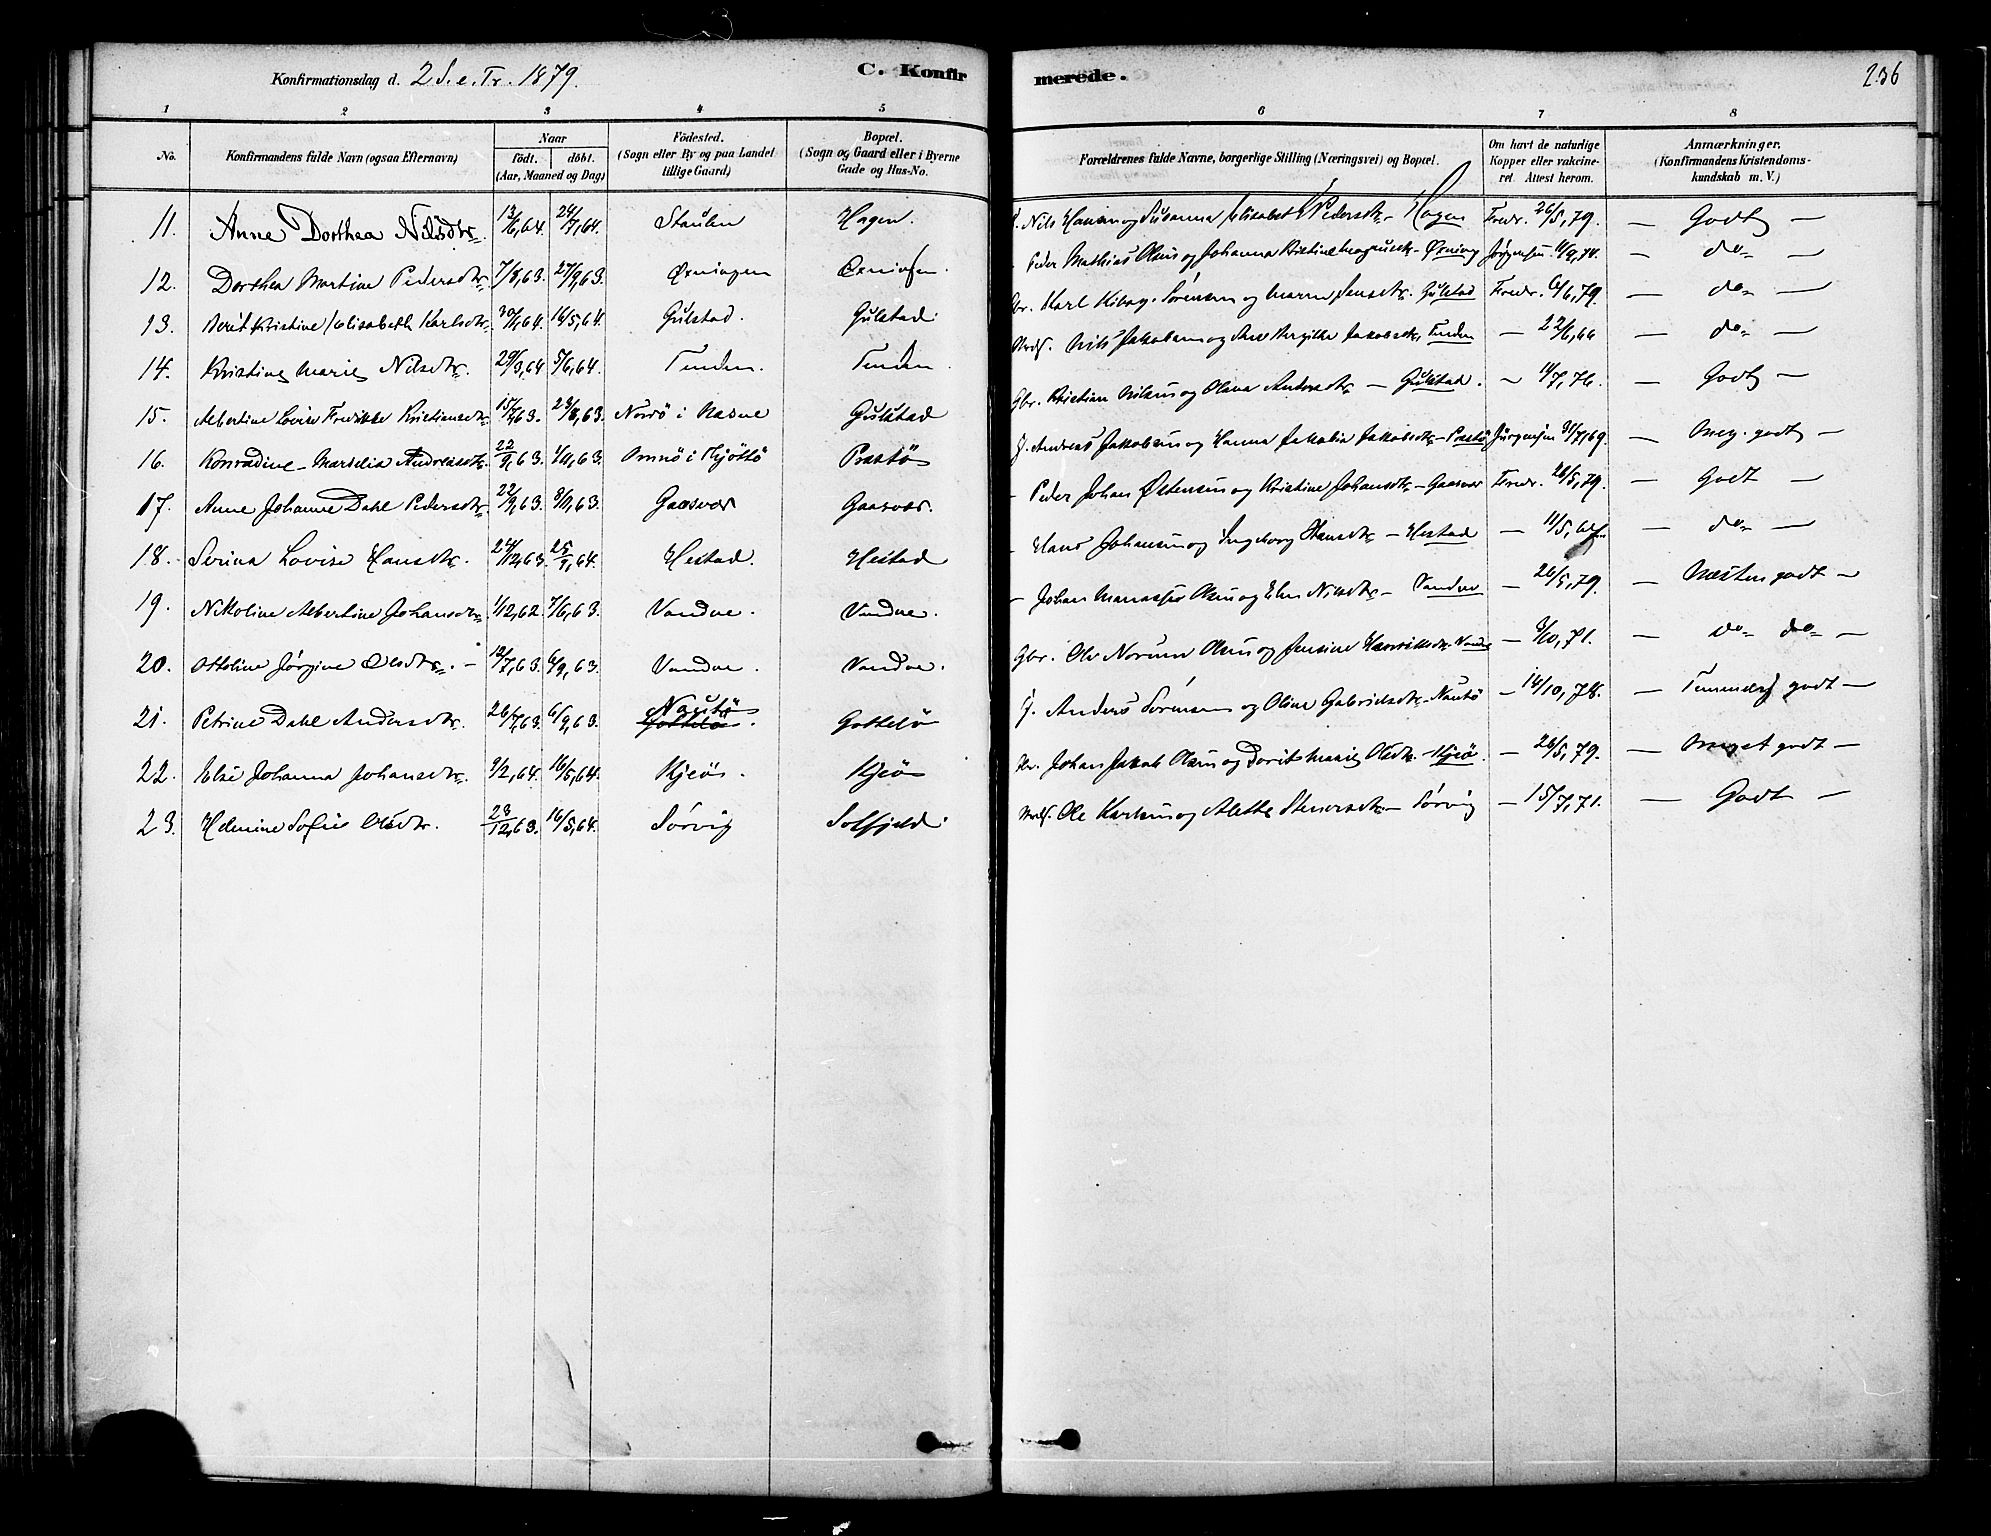 Konfirmationsdag d. 2 S. e. Tr. 1879.
C. Konfirmerede.
236
1 2 3 4 5 6 7 8
No.
Konfirmandens fulde Navn (ogsaa Efternavn)
Naar
födt. döbt.
(Aar, Maaned og Dag)
Födested.
(Sogn eller By og paa Landet
tillige Gaard)
Bopæl.
(Sogn og Gaard eller i Byerne
Gade og Hus-No.
Forældrenes fulde Navne, borgerlige Stilling (Næringsvei) og Bopæl.
Om havt de naturlige
Kopper eller vakcine-
ret. Attest herom.
Anmærkninger.
(Konfirmandens Kristendoms-
kundskab m. V.)
11. Anne Dorthea Nilsdtr. 13/6,64. 24/7,64. Staulen Hagen. Nils Hansen og Susanna Elisabet Pedersdtr. – Hagen Fredr. 26/5,79. — Godt —
12. Dorthea Martine Pedersdtr. 7/8,63. 27/9,63. Øxningen Øxningen. Peder Mathias Olsen og Johanna Kristine Magnusdtr. – Øxning Jörgensen — do —
13. Berit Kristine Elisabeth Karlsdtr. 16/5,64. Gulstad. Gulstad Gbr. Karl Sörensen og Maren Jensdtr. Gulstad Fredr. 6/6,79. — do —
14. Kristine Marie Nilsdtr. 29/3,64 5/6,64. Tenden. Tenden. Nils Jakobsen og Jakobsdtr. Tenden — 22/6,66 — do —
15. Albertine Lovise Fredrikke Kristiansdtr. 15/7,63. 23/8,63. Norsö i Næsne Gulstad Gbr. Kristian Nilsen og Olava Andersdtr. — Gulstad. — 11/7,76. — Godt —
16. Konradine Marselia Andreasdtr. 22/9,63. 1/11,63. Omnö i Tjöttö Prestö J. Andreas Jakobsen og Hanna Jakobia Jakobsdtr. – Prestö Jörgensen 31/7,69. — Meg. godt —
17. Anne Johanne Dahl Pedersdtr. 22/9,63. 8/11,63. Gaasvær Gaasvær. – Peder Johan Østensen og Kristine Johansdtr. – Gaasvær Fredr. 26/5,79. — Godt —
18. Serina Lovise Hansdtr. 24/12,63. 25/1,64. Hestad. Hestad – Hans Johansen og Ingeborg Hansdtr. – Hestad — 11/5, — do —
19. Nikoline Albertine Johansdtr. 1/12,62. 7/6,63. Vandve. Vandve. – Johan Manasse Olsen og Elen Nilsdtr. – Vandve — 26/5,79. — Næsten godt —
20. Ottoline Jørgine Olsdtr. – 12/7,63. 6/9,63. Vandve. Vandve. Gbr. Ole Norum Olsen og Jensine Henriksdtr. Vandve — 8/10,71. — do do —
21. Petrine Dahl Andersdtr. 26/7,63. 6/9,63. Nautö Gottelö. Gottelö J. Anders Sörensen og Oline Gabrielsdtr. – Nautö — 14/10,78. — Temmelig godt —
22. Else Johanna Johansdtr. 9/2,64. 16/5,64. Kjeö. Kjeö Johan Jakob Olsen og Dorits Marie Olsdtr. – Kjeö. — 26/5,79. — Meget godt —
23. Helmine Sofie Olsdtr. 23/12,63. 16/5,64. Sörvig Solfjeld. Ole Karlsen og Alette Stenersdtr. – Sörvig — 15/7,71. — Godt —